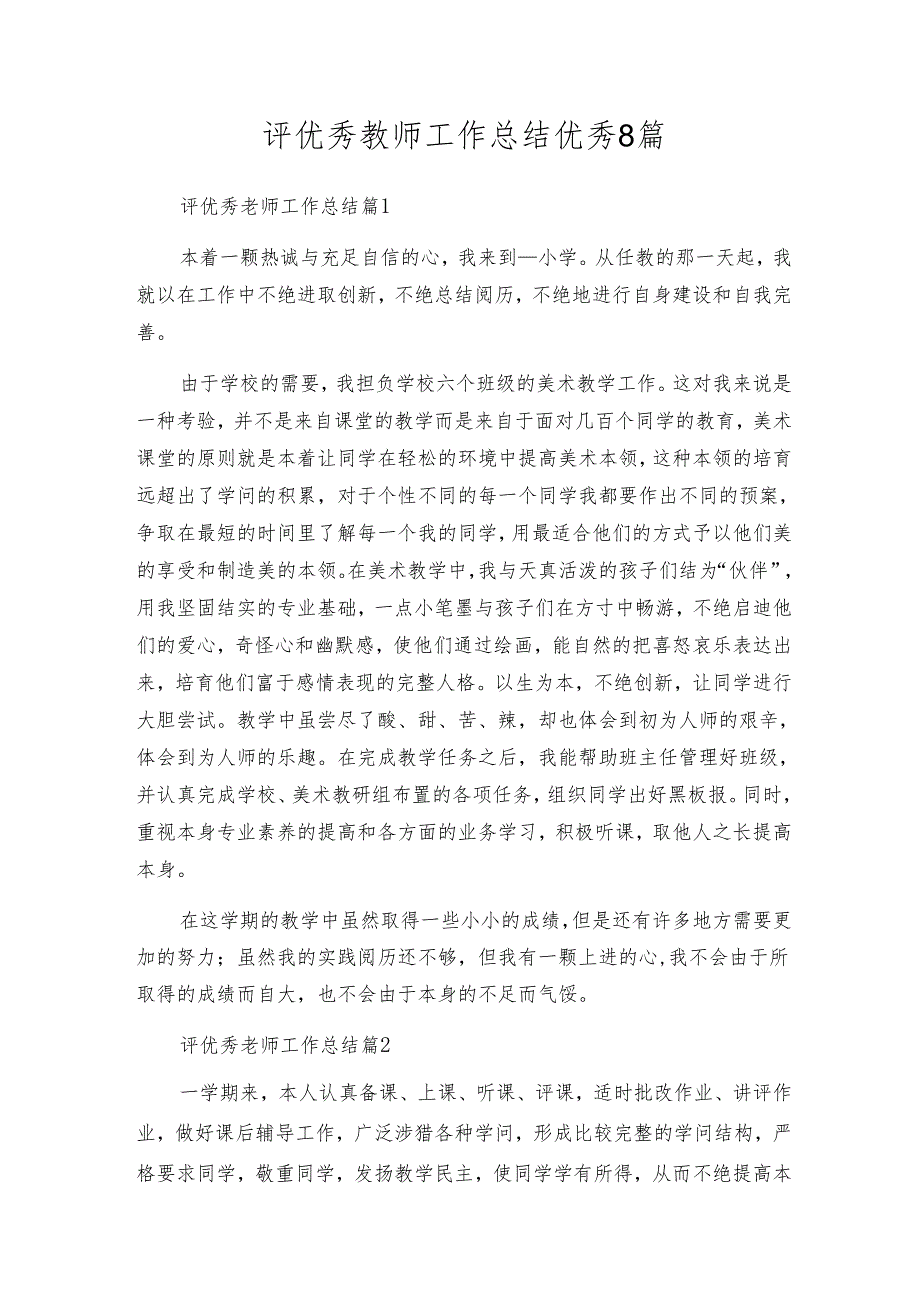 评优秀教师工作总结优秀8篇
评优秀老师工作总结篇1
本着一颗热诚与充足自信的心，我来到—小学。从任教的那一天起，我
就以在工作中不绝进取创新，不绝总结阅历，不绝地进行自身建设和自我完
善。
由于学校的需要，我担负学校六个班级的美术教学工作。这对我来说是
一种考验，并不是来自课堂的教学而是来自于面对几百个同学的教育，美术
课堂的原则就是本着让同学在轻松的环境中提高美术本领，这种本领的培育
远超出了学问的积累，对于个性不同的每一个同学我都要作出不同的预案，
争取在最短的时间里了解每一个我的同学，用最适合他们的方式予以他们美
的享受和制造美的本领。在美术教学中，我与天真活泼的孩子们结为“伙伴”，
用我坚固结实的专业基础，一点小笔墨与孩子们在方寸中畅游，不绝启迪他
们的爱心，奇怪心和幽默感，使他们通过绘画，能自然的把喜怒哀乐表达出
来，培育他们富于感情表现的完整人格。以生为本，不绝创新，让同学进行
大胆尝试。教学中虽尝尽了酸、甜、苦、辣，却也体会到初为人师的艰辛，
体会到为人师的乐趣。在完成教学任务之后，我能帮助班主任管理好班级，
并认真完成学校、美术教研组布置的各项任务，组织同学出好黑板报。同时，
重视本身专业素养的提高和各方面的业务学习，积极听课，取他人之长提高
本身。
在这学期的教学中虽然取得一些小小的成绩，但是还有许多地方需要更
加的努力；虽然我的实践阅历还不够，但我有一颗上进的心,我不会由于所
取得的成绩而自大，也不会由于本身的不足而气馁。
评优秀老师工作总结篇2
一学期来，本人认真备课、上课、听课、评课，适时批改作业、讲评作
业，做好课后辅导工作，广泛涉猎各种学问，形成比较完整的学问结构，严
格要求同学，敬重同学，发扬教学民主，使同学学有所得，从而不绝提高本